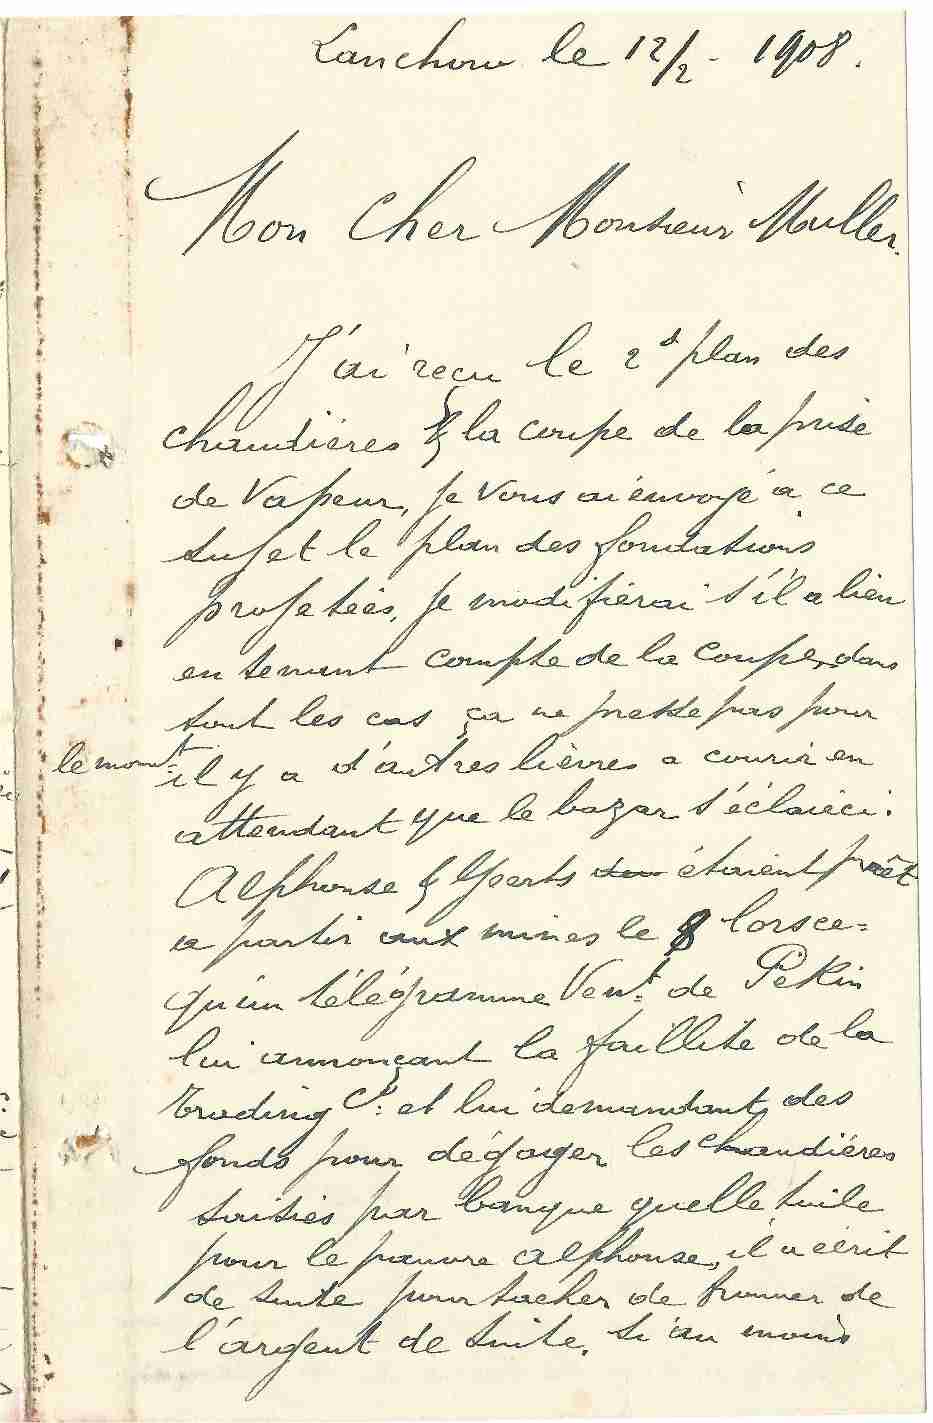 Lanchow le 12/2 - 1908.
Mon Cher Monsieur Muller.
J'ai reçu le 2d plan des
chaudières & la coupe de la prise
de Vapeur, je vous ai envoyé a ce
sujet le plan des fondations
projetées, je modifierai s'il a lieu
en tenant compte de la coupe, dans
tout les cas ça ne presse pas pour
le momt il y a d'autres lièvres a courir en
attendant que le bazar s'éclairci.
Alphonse & Geerts étaient prêt
a partir aux mines le 8 lorsce=
qu'un télégramme Vent de Pékin
lui annonçant la faillite de la
Trading Co: et lui demandant des
fonds pour dégager les chaudières
saisies par banque quelle tuile
pour le pauvre Alphonse, il a écrit
de suite pour tacher de trouver de
l'argent de suite, si au moins